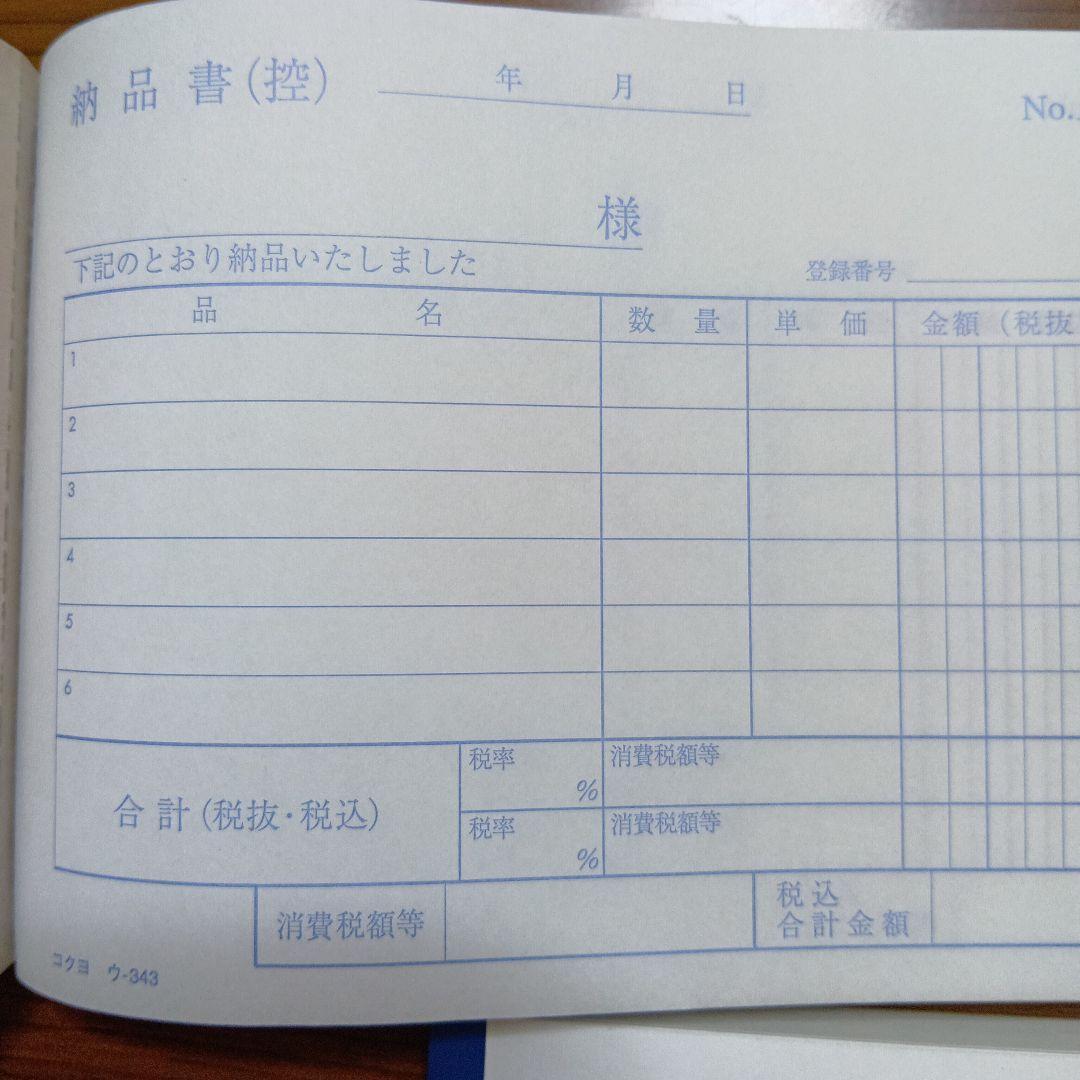 納品書(控) 年 月 日 No.
様
下記のとおり納品いたしました
登録番号
品名 数量 単価 金額(税抜
1
2
3
4
5
6
合計(税抜・税込) 税率 % 消費税額等
税率 % 消費税額等
消費税額等 税込合計金額
コクヨ ウ-343